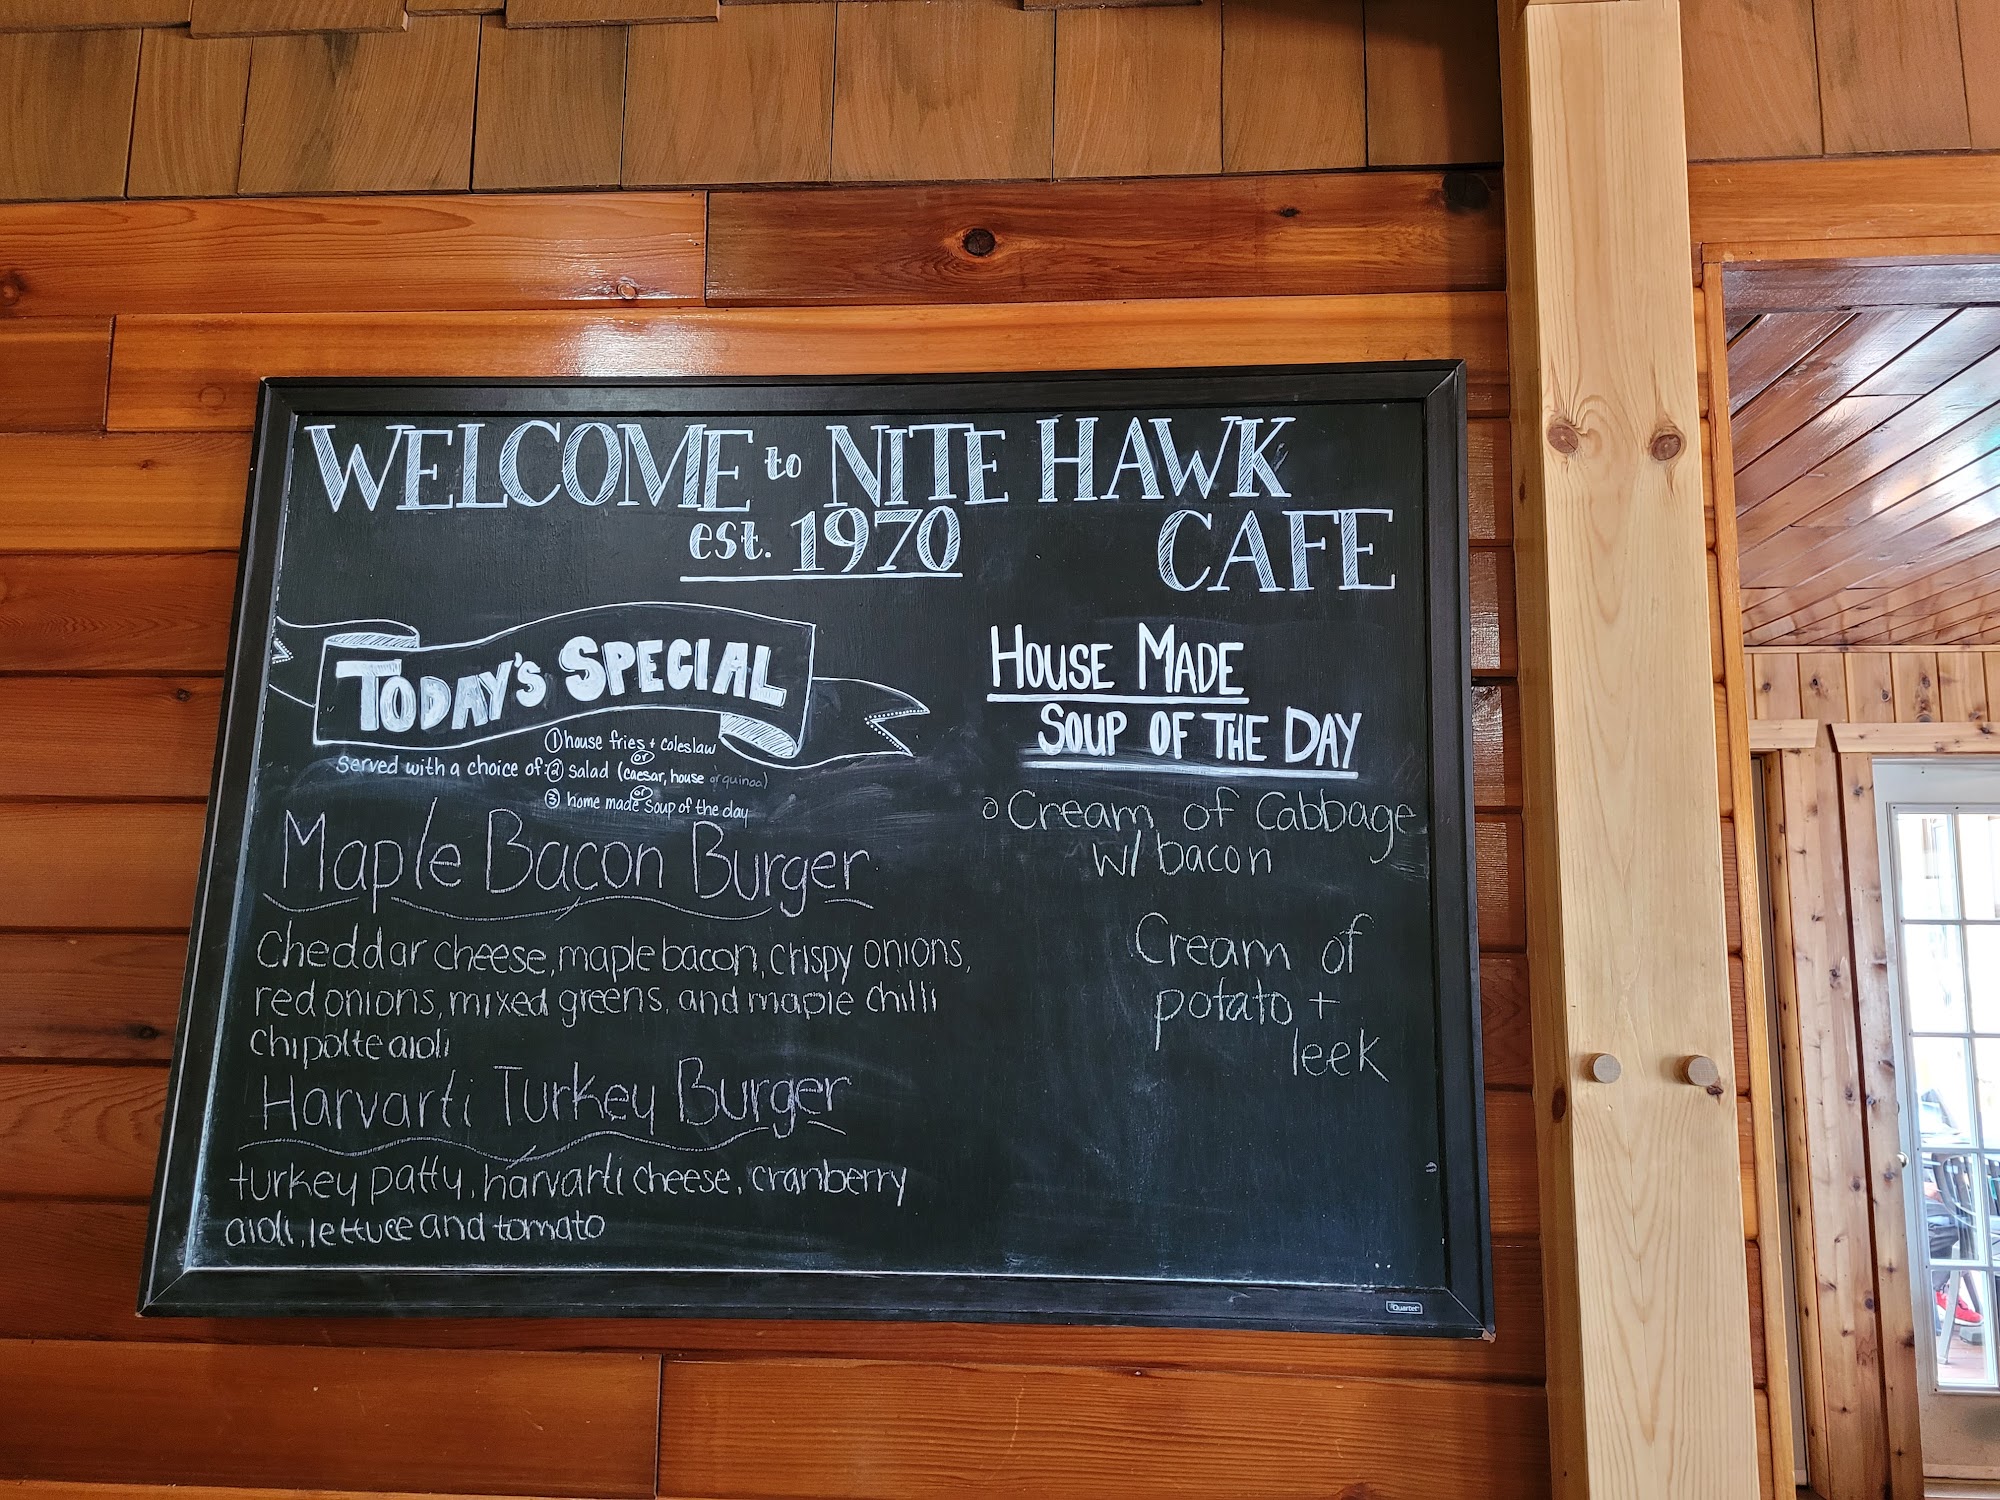 WELCOME to NITE HAWK
est. 1970 CAFE
TODAY'S SPECIAL
Served with a choice of:
① house fries + coleslaw
or
② salad (caesar, house or quinoa)
or
③ home made soup of the day
Maple Bacon Burger
Cheddar cheese, maple bacon, crispy onions,
red onions, mixed greens, and maple chilli
chipolte aioli
Harvarti Turkey Burger
turkey patty, harvarti cheese, cranberry
aioli, lettuce and tomato
HOUSE MADE
SOUP OF THE DAY
Cream of Cabbage
w/ bacon
Cream of
potato +
leek
Quartet